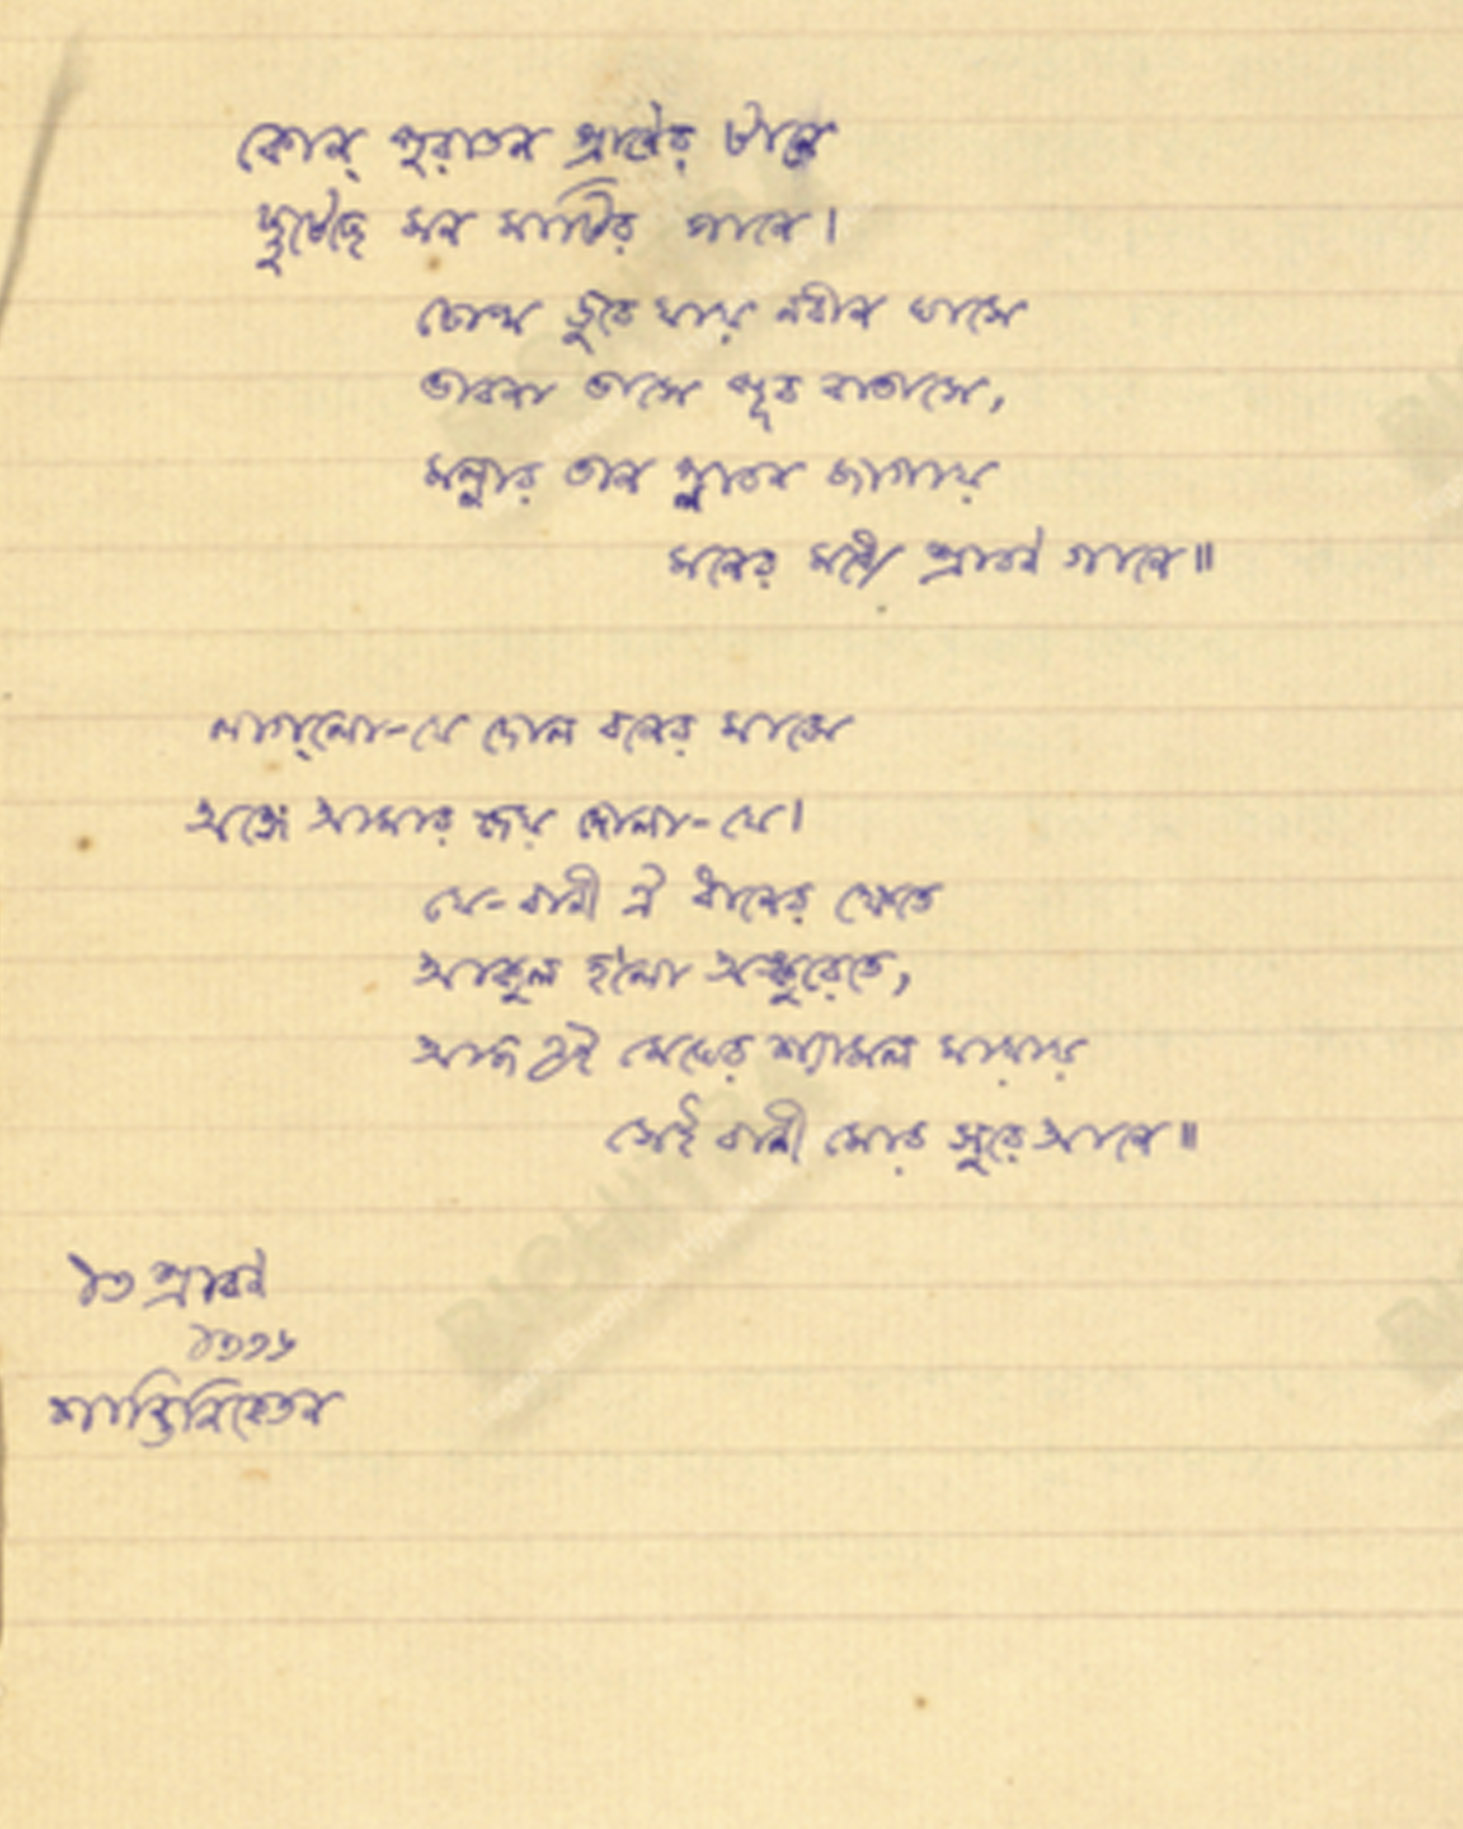 কোন্ পুরাতন প্রাণের টানে
ছুটেছে মন মাটির পানে।
চোখ ডুবে যায় নবীন ঘাসে
ভাবনা ভাসে পূব বাতাসে,
মল্লার তান প্লাবন জাগায়
মনের মধ্যে শ্রাবণ গানে॥
লাগ্‌লো-যে দোল বনের মাঝে
অঙ্গে আমার দেয় দোলা-যে।
যে-বাণী ঐ ধানের খেতে
আকুল হ'লো অঙ্কুরেতে,
আজ এই মেঘের শ্যামল মায়ায়
সেই বাণী মোর সুরে আনে॥
১৩ শ্রাবণ
১৩৩৬
শান্তিনিকেতন